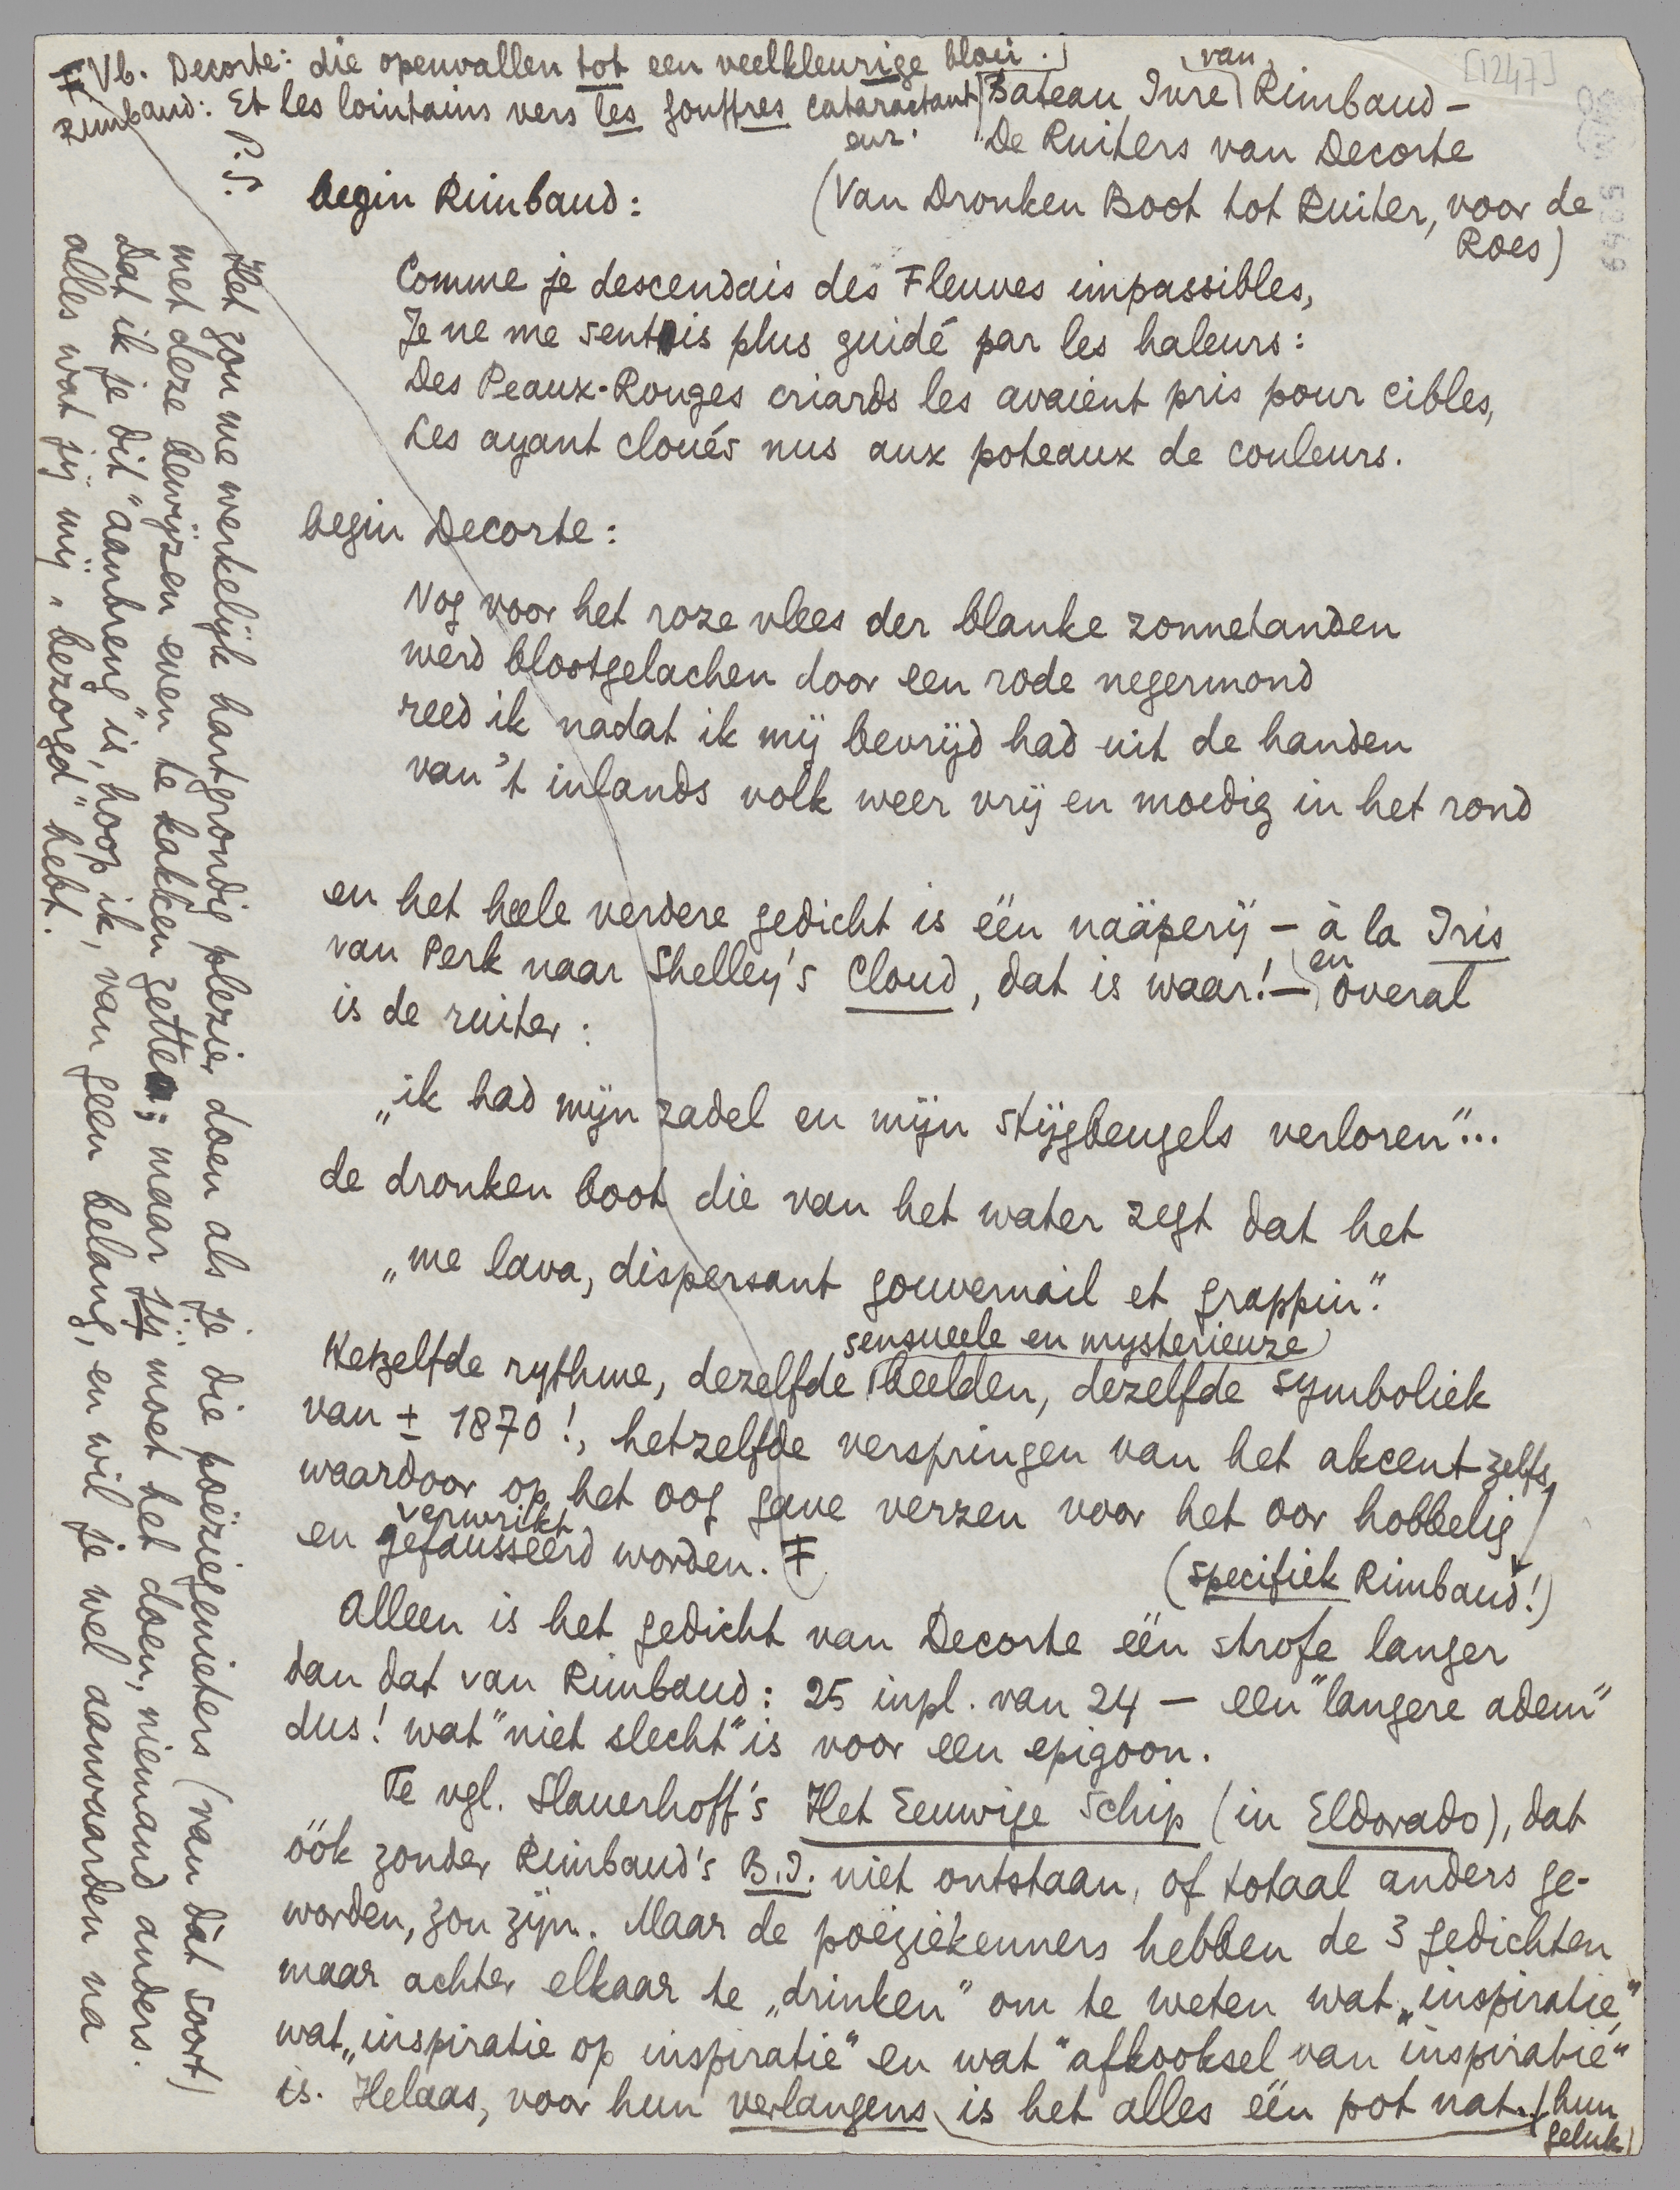 Ŧ Vb. Decorte: die openvallen tot een veelkleurige bloei.
Rimbaud: Et les lointains vers les gouffres cataractant
enz.
[1247]
Bateau Ivre van Rimbaud –
De Ruiters van Decorte
(Van Dronken Boot tot Ruiter, voor de
Roes)
begin Rimbaud:
Comme je descendais des Fleuves impassibles,
Je ne me sentais plus guidé par les haleurs:
Des Peaux-Rouges criards les avaient pris pour cibles,
Les ayant cloués nus aux poteaux de couleurs.
begin Decorte:
Nog voor het roze vlees der blanke zonnetanden
werd blootgelachen door een rode negermond
reed ik nadat ik mij bevrijd had uit de handen
van 't inlands volk weer vrij en moedig in het rond
en het heele verdere gedicht is één naäperij – à la Iris
van Perk naar Shelley's Cloud, dat is waar! – en overal
is de ruiter:
„ik had mijn zadel en mijn stijgbeugels verloren"...
de dronken boot die van het water zegt dat het
„me lava, dispersant gouvernail et grappin."
Hetzelfde rythme, dezelfde sensueele en mysterieuze beelden, dezelfde symboliek
van ± 1870!, hetzelfde verspringen van het akcent zelfs,
waardoor op het oog gave verzen voor het oor hobbelig
en verwrikt gefausseerd worden. Ŧ
(specifiek Rimbaud!)
Alleen is het gedicht van Decorte één strofe langer
dan dat van Rimbaud: 25 inpl. van 24 – een "langere adem"
dus! wat "niet slecht" is voor een epigoon.
Te vgl. Slauerhoff's Het Eeuwige Schip (in Eldorado), dat
óók zonder Rimbaud's B.I. niet ontstaan, of totaal anders ge-
worden, zou zijn. Maar de poëziekenners hebben de 3 gedichten
maar achter elkaar te „drinken" om te weten wat „inspiratie,"
wat „inspiratie op inspiratie" en wat "afkooksel van inspiratie"
is. Helaas, voor hun verlangens is het alles één pot nat. (hun
geluk)
P.S.
Het zou me werkelijk hartgrondig plezier doen als je die poëziegenieters (van dàt soort)
met deze bewijzen even te kakken zette; maar jij moet het doen, niemand anders.
Dat ik je dit "aanbreng" is, hoop ik, van geen belang, en wil je wel aanvaarden na
alles wat jij mij „bezorgd" hebt.